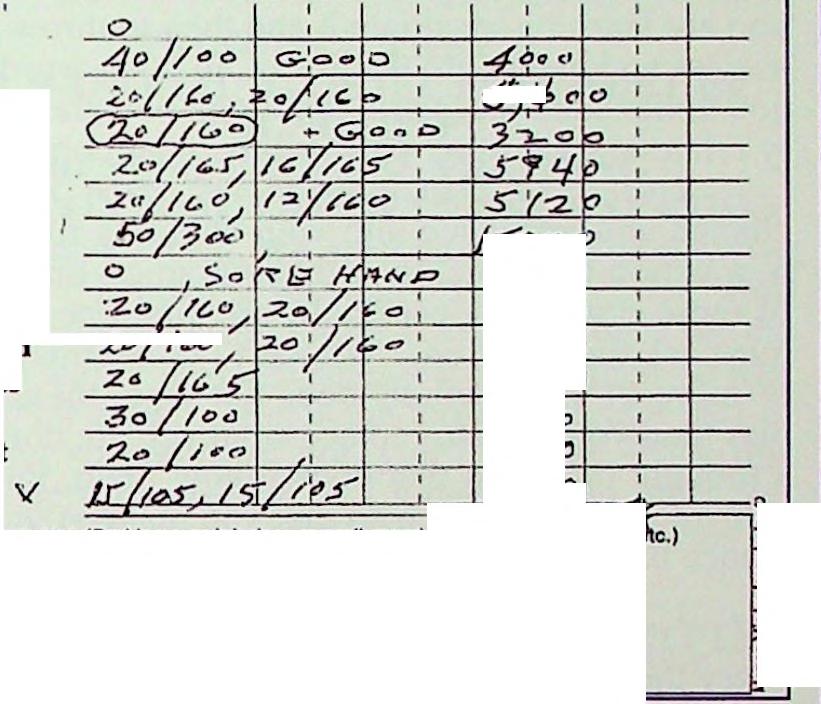 0
40/100 GOOD 4000
20/160, 20/160 00
20/160 + GOOD 3200
20/165, 16/165 5940
20/160, 12/160 5120
50/300
0 , SORE HAND
20/160, 20/160
20/160, 20/160
20/165
30/100
20/100
15/105, 15/105
tc.)